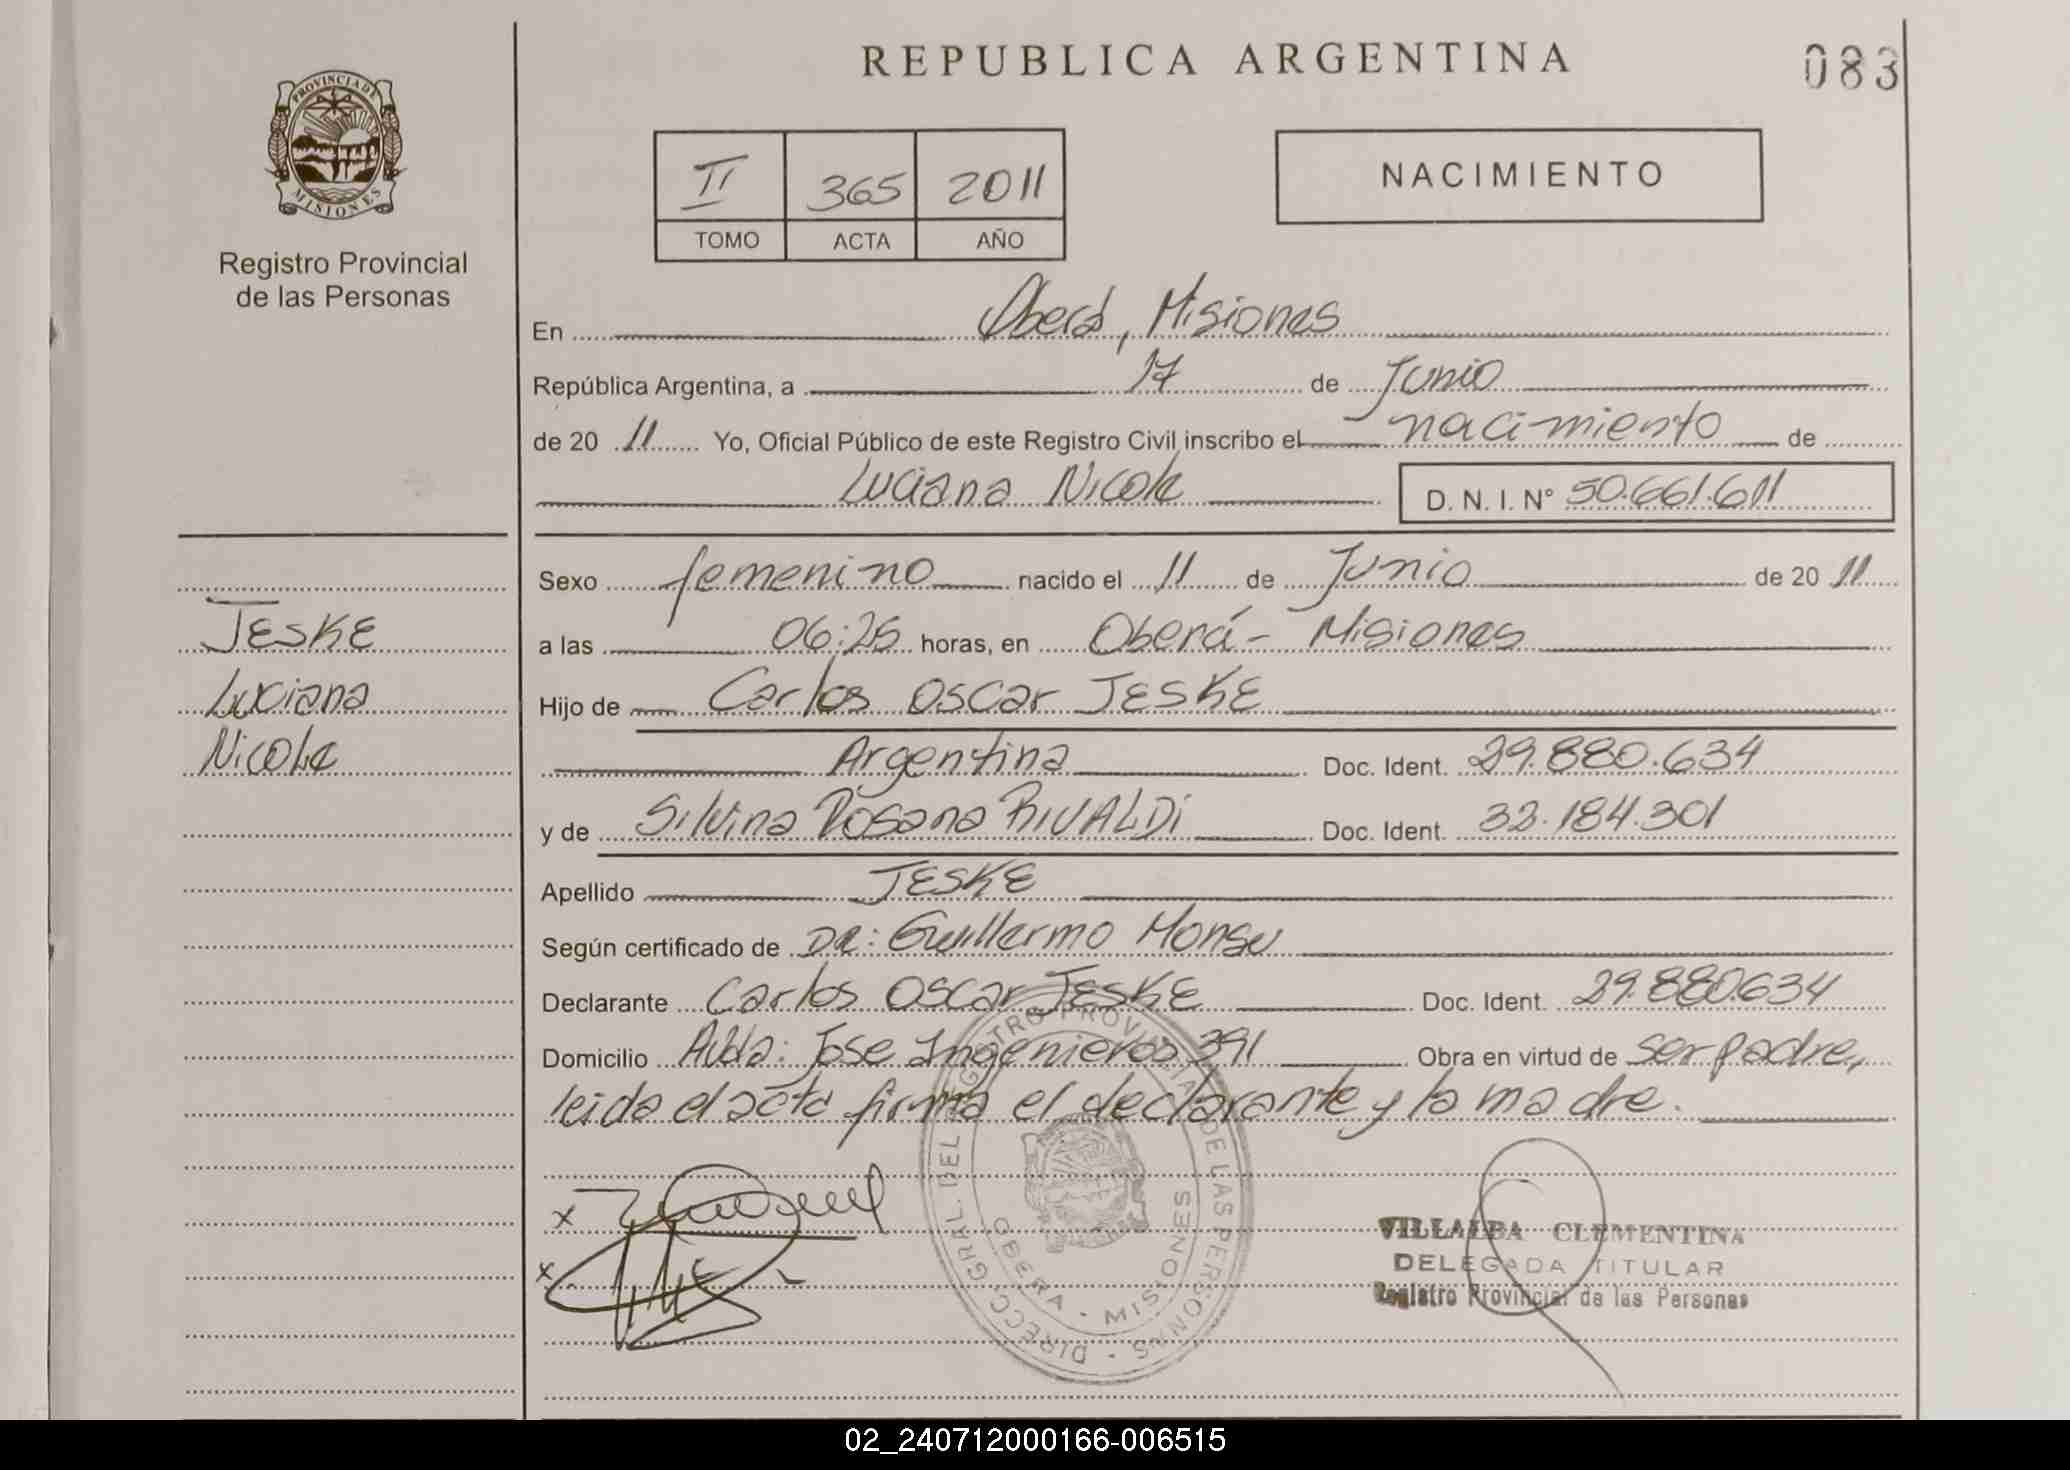 REPUBLICA ARGENTINA
083
PROVINCIA DE
MISIONES
Registro Provincial
de las Personas
II 365 2011
TOMO ACTA AÑO
NACIMIENTO
En Oberá, Misiones
República Argentina, a 17 de Junio
de 20 11 Yo, Oficial Público de este Registro Civil inscribo el nacimiento de
Luciana Nicole D. N. I. N° 50.661.611
Sexo femenino nacido el 11 de Junio de 20 11
a las 06:25 horas, en Oberá - Misiones
Hijo de Carlos Oscar JESKE
Argentina Doc. Ident. 29.880.634
y de Silvina Rosana RIVALDi Doc. Ident. 32.184.301
Apellido JESKE
Según certificado de DR: Guillermo Monsu
Declarante Carlos Oscar JESKE Doc. Ident. 29.880.634
Domicilio Avda: Jose Ingenieros 391 Obra en virtud de ser padre,
leida el acta firma el declarante y la madre.
JESKE
Luciana
Nicole
DIRECC. GRAL. DEL REGISTRO PROVINCIAL DE LAS PERSONAS
OBERA - MISIONES
VILLALBA CLEMENTINA
DELEGADA TITULAR
Registro Provincial de las Personas
02_240712000166-006515